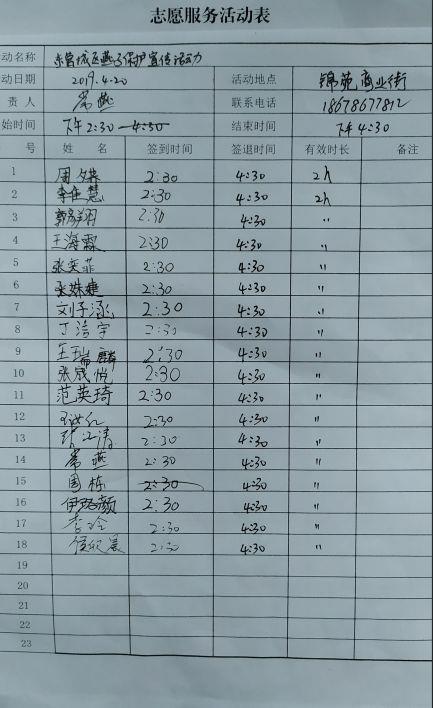 志愿服务活动表
动名称 东营城区燕子保护宣传活动
动日期 2019.4.20 活动地点 锦苑商业街
责人 常燕 联系电话 18678677812
始时间 下午2:30—4:30 结束时间 下午4:30
号 姓名 签到时间 签退时间 有效时长 备注
1 2:30 4:30 2h
2 李佳慧 2:30 4:30 2h
3 2:30 4:30 〃
4 王海霖 2:30 4:30 〃
5 张奕菲 2:30 4:30 〃
6 张姝婕 2:30 4:30 〃
7 刘子涵 2:30 4:30 〃
8 丁浩宇 2:30 4:30 〃
9 王瑞麟 2:30 4:30 〃
10 张宬悦 2:30 4:30 〃
11 范英琦 2:30 4:30 〃
12 2:30 4:30 〃
13 2:30 4:30 〃
14 常燕 2:30 4:30 〃
15 国栋 2:30 4:30 〃
16 伊珞颜 2:30 4:30 〃
17 李玲 2:30 4:30 〃
18 2:30 4:30 〃
19
20
21
22
23